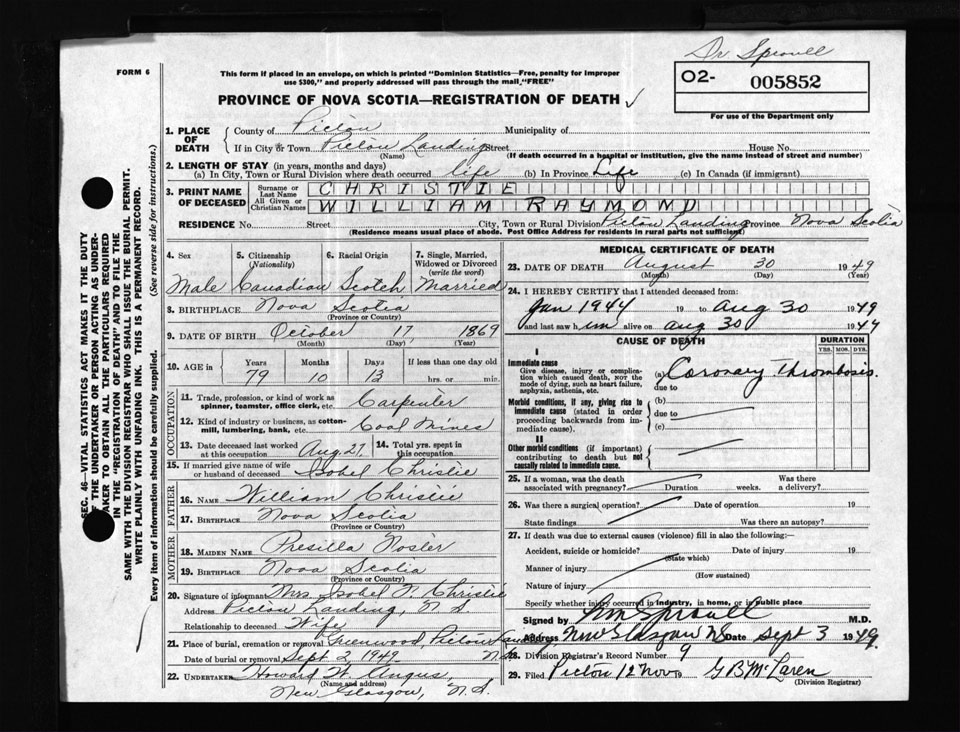 Dr Sproull
FORM 6
This form if placed in an envelope, on which is printed "Dominion Statistics—Free, penalty for improper
use $300," and properly addressed will pass through the mail "FREE"
O2- 005852
PROVINCE OF NOVA SCOTIA—REGISTRATION OF DEATH ✓
For use of the Department only
1. PLACE OF DEATH
County of Pictou Municipality of
If in City or Town Pictou Landing Street House No.
(Name) (If death occurred in a hospital or institution, give the name instead of street and number)
2. LENGTH OF STAY (in years, months and days)
(a) In City, Town or Rural Division where death occurred life (b) In Province Life (c) In Canada (if immigrant)
3. PRINT NAME OF DECEASED
Surname or Last Name CHRISTIE
All Given or Christian Names WILLIAM RAYMOND
RESIDENCE No. Street City, Town or Rural Division Pictou Landing Province Nova Scotia
(Residence means usual place of abode. Post Office Address for residents in rural parts not sufficient)
SEC. 46—VITAL STATISTICS ACT MAKES IT THE DUTY
OF THE UNDERTAKER OR PERSON ACTING AS UNDER-
TAKER TO OBTAIN ALL THE PARTICULARS REQUIRED
IN THE "REGISTRATION OF DEATH" AND TO FILE THE
SAME WITH THE DIVISION REGISTRAR WHO SHALL ISSUE THE BURIAL PERMIT.
WRITE PLAINLY WITH UNFADING INK. THIS IS A PERMANENT RECORD.
Every item of information should be carefully supplied. (See reverse side for instructions.)
4. Sex 5. Citizenship (Nationality) 6. Racial Origin 7. Single, Married, Widowed or Divorced (write the word)
Male Canadian Scotch Married
8. BIRTHPLACE Nova Scotia
(Province or Country)
9. DATE OF BIRTH October 17 1869
(Month) (Day) (Year)
10. AGE in Years Months Days If less than one day old
79 10 13 hrs. or min.
OCCUPATION
11. Trade, profession, or kind of work as
spinner, teamster, office clerk, etc. Carpenter
12. Kind of industry or business, as cotton-
mill, lumbering, bank, etc. Coal Mines
13. Date deceased last worked at this occupation Aug. 27. 14. Total yrs. spent in this occupation
15. If married give name of wife
or husband of deceased Isobel Christie
FATHER
16. NAME William Christie
17. BIRTHPLACE Nova Scotia
(Province or Country)
MOTHER
18. MAIDEN NAME Presilla
19. BIRTHPLACE Nova Scotia
(Province or Country)
20. Signature of informant Mrs. Isobel Christie
Address Pictou Landing, N.S.
Relationship to deceased Wife
21. Place of burial, cremation or removal Greenwood, Pictou Landing
Date of burial or removal Sept 2, 1949 N.S.
22. UNDERTAKER Howard W. Angus,
(Name and address)
New Glasgow, N.S.
MEDICAL CERTIFICATE OF DEATH
23. DATE OF DEATH August 30 1949
(Month) (Day) (Year)
24. I HEREBY CERTIFY that I attended deceased from:
Jan 1944 19 to Aug 30 1949
and last saw him alive on Aug 30 1947
CAUSE OF DEATH DURATION
YRS. MOS. DYS.
I
Immediate cause
Give disease, injury or complica-
tion which caused death, not the
mode of dying, such as heart failure,
asphyxia, asthenia, etc.
(a) Coronary Thrombosis.
due to
Morbid conditions, if any, giving rise to
immediate cause (stated in order
proceeding backwards from im-
mediate cause).
(b)
due to
(c)
II
Other morbid conditions (if important)
contributing to death but not
causally related to immediate cause.
25. If a woman, was the death Was there
associated with pregnancy? Duration weeks. a delivery?
26. Was there a surgical operation? Date of operation 19
State findings Was there an autopsy?
27. If death was due to external causes (violence) fill in also the following:—
Accident, suicide or homicide? Date of injury 19
(State which)
Manner of injury
(How sustained)
Nature of injury
Specify whether injury occurred in industry, in home, or in public place
Signed by Sproull M.D.
Address New Glasgow NS Date Sept 3 1949
28. Division Registrar's Record Number 9
29. Filed Pictou 12 Nov 19 G B McLaren
(Division Registrar)